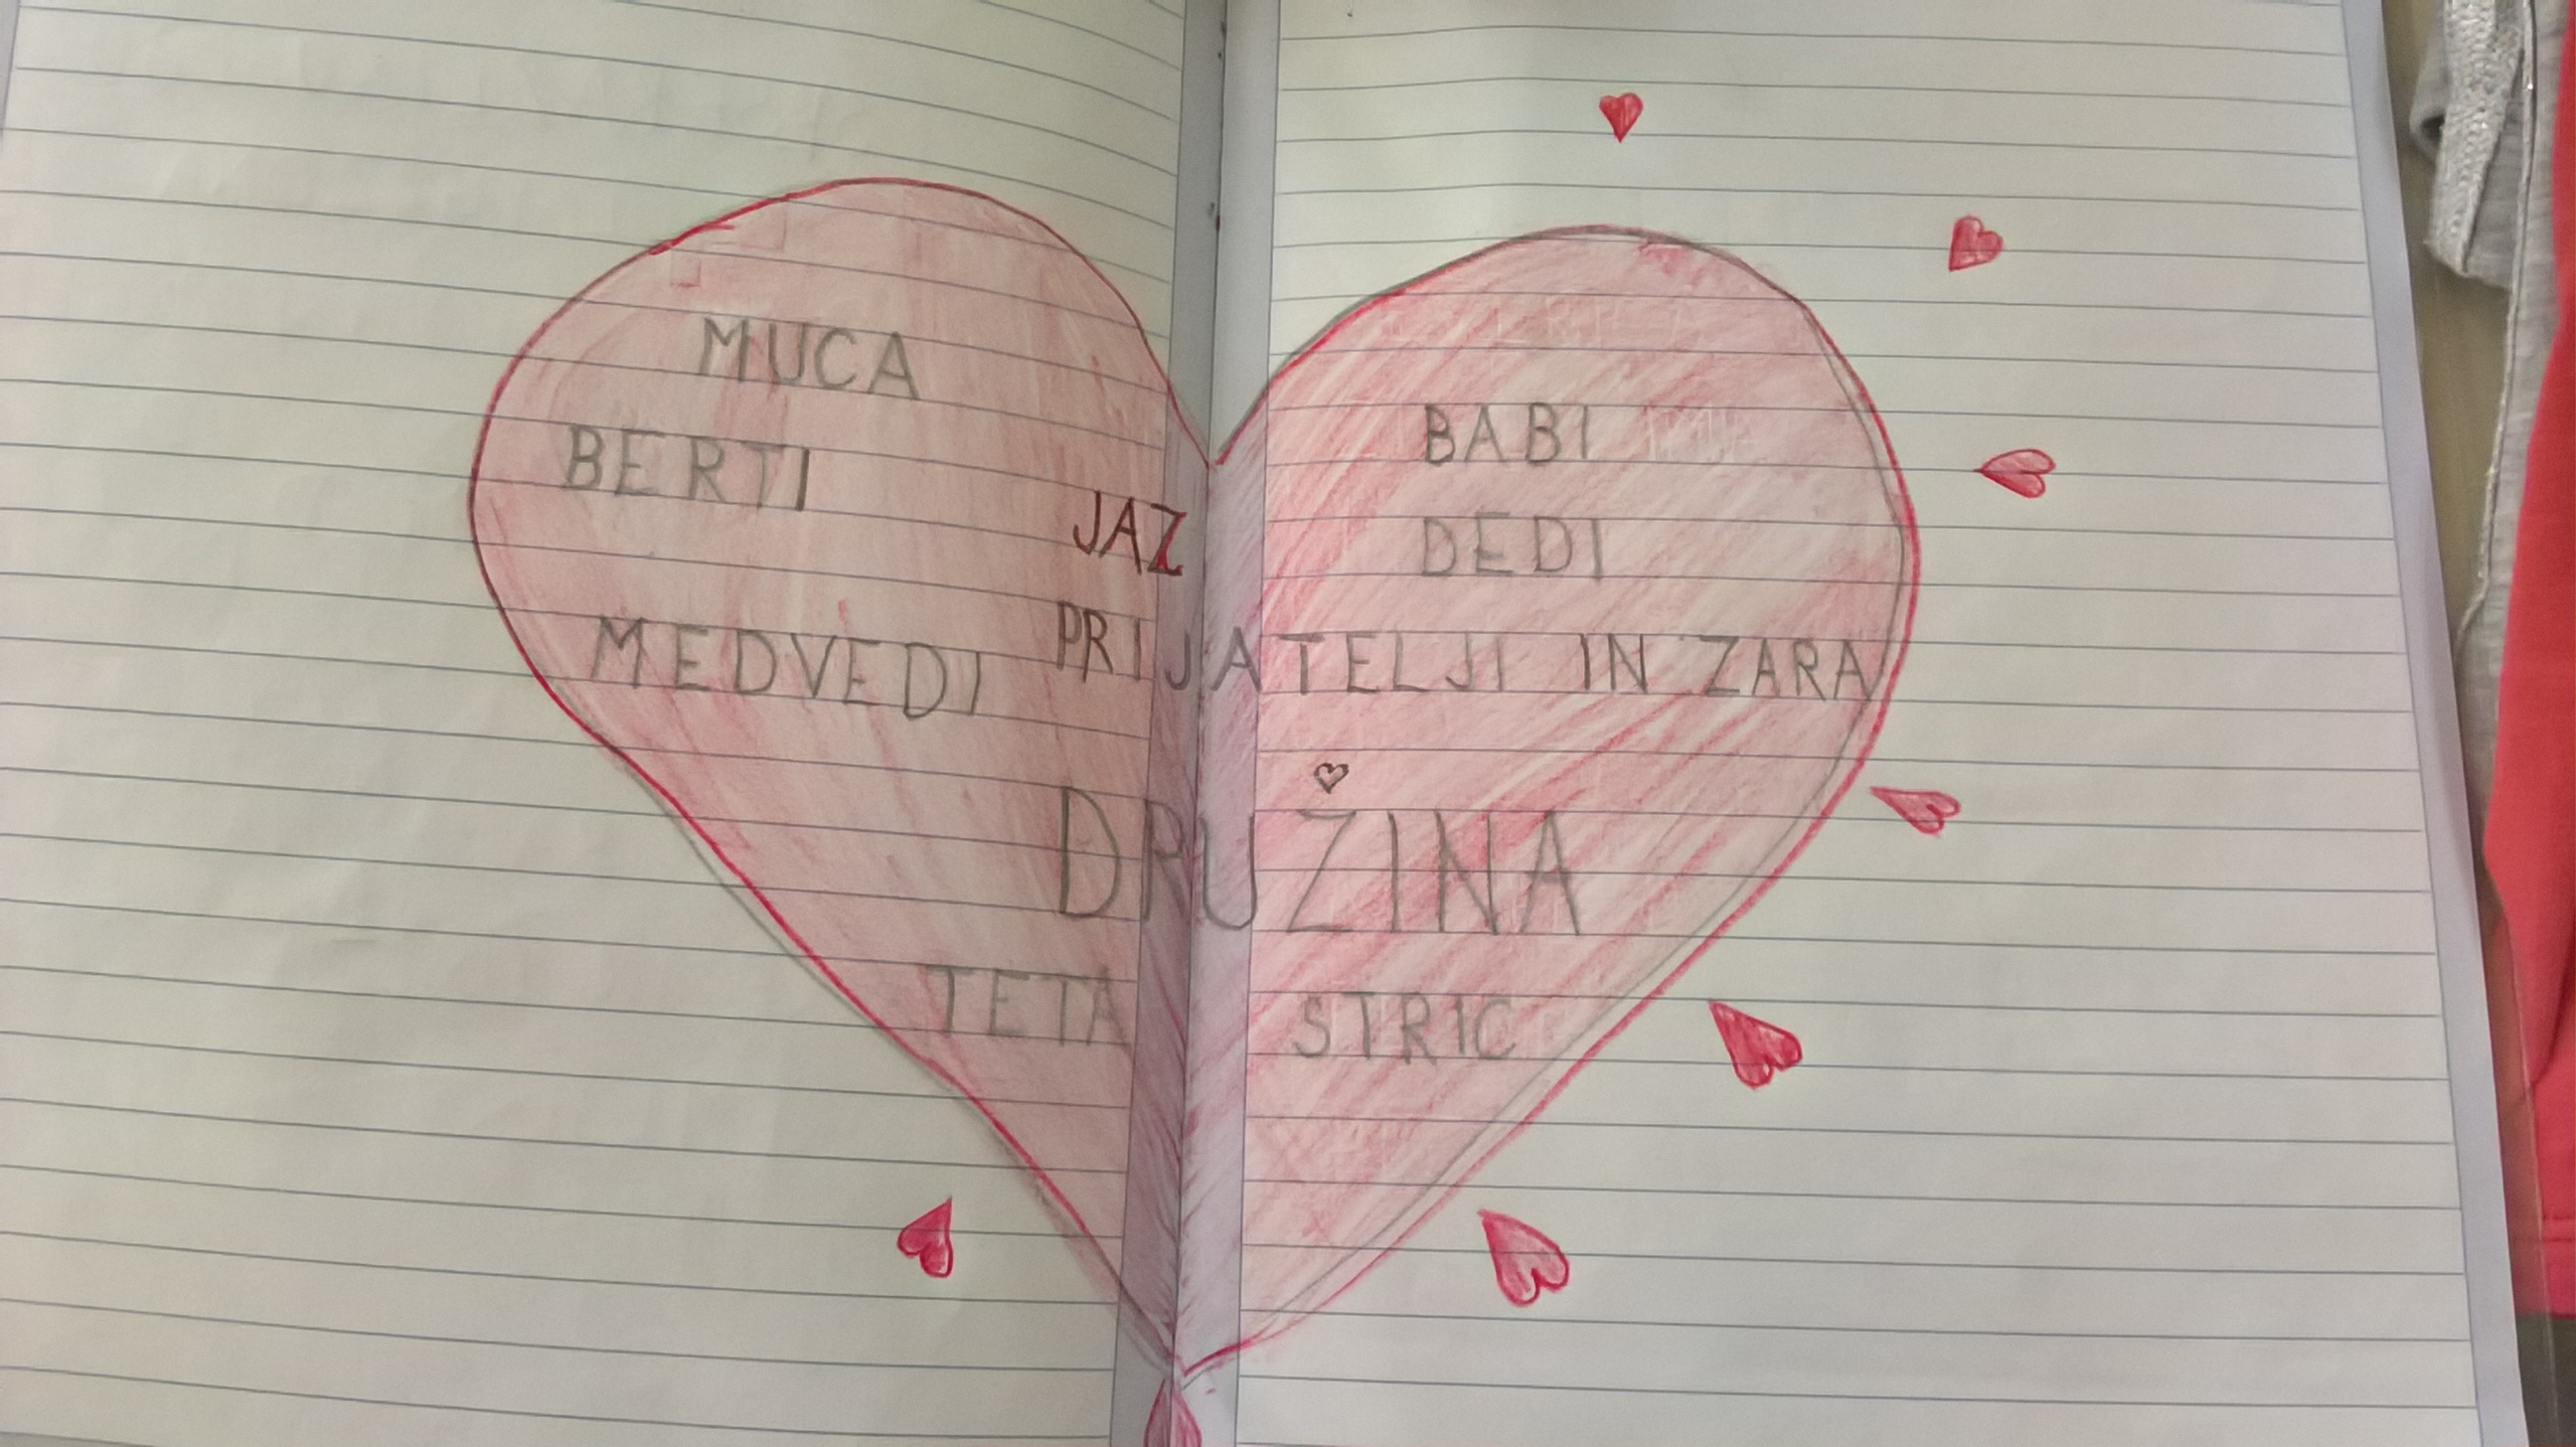 MUCA
BERTI
JAZ
BABI
DEDI
MEDVEDI
PRIJATELJI IN ZARA
DRUŽINA
TETA
STRIC